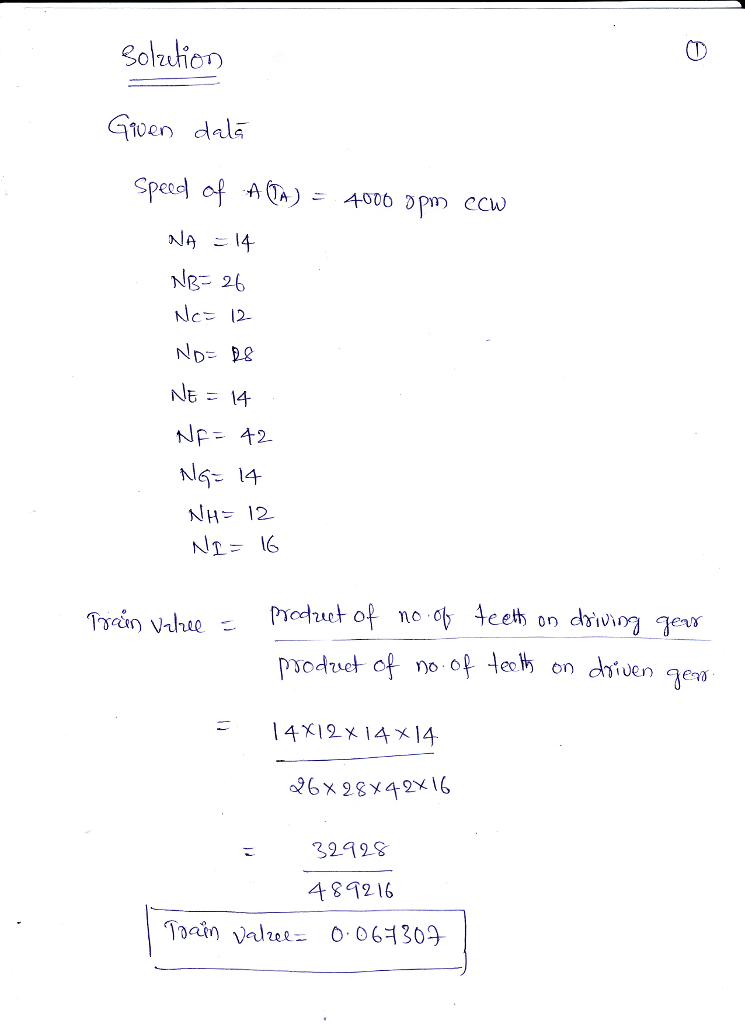 ①
Solution
Given data
Speed of A(TA) = 4000 rpm ccw
NA = 14
NB= 26
NC= 12
ND= 28
NE = 14
NF= 42
NG= 14
NH= 12
NI= 16
Train value = product of no. of teeth on driving gear
product of no. of teeth on driven gear.
= 14×12×14×14
26×28×42×16
= 32928
489216
Train value= 0.067307